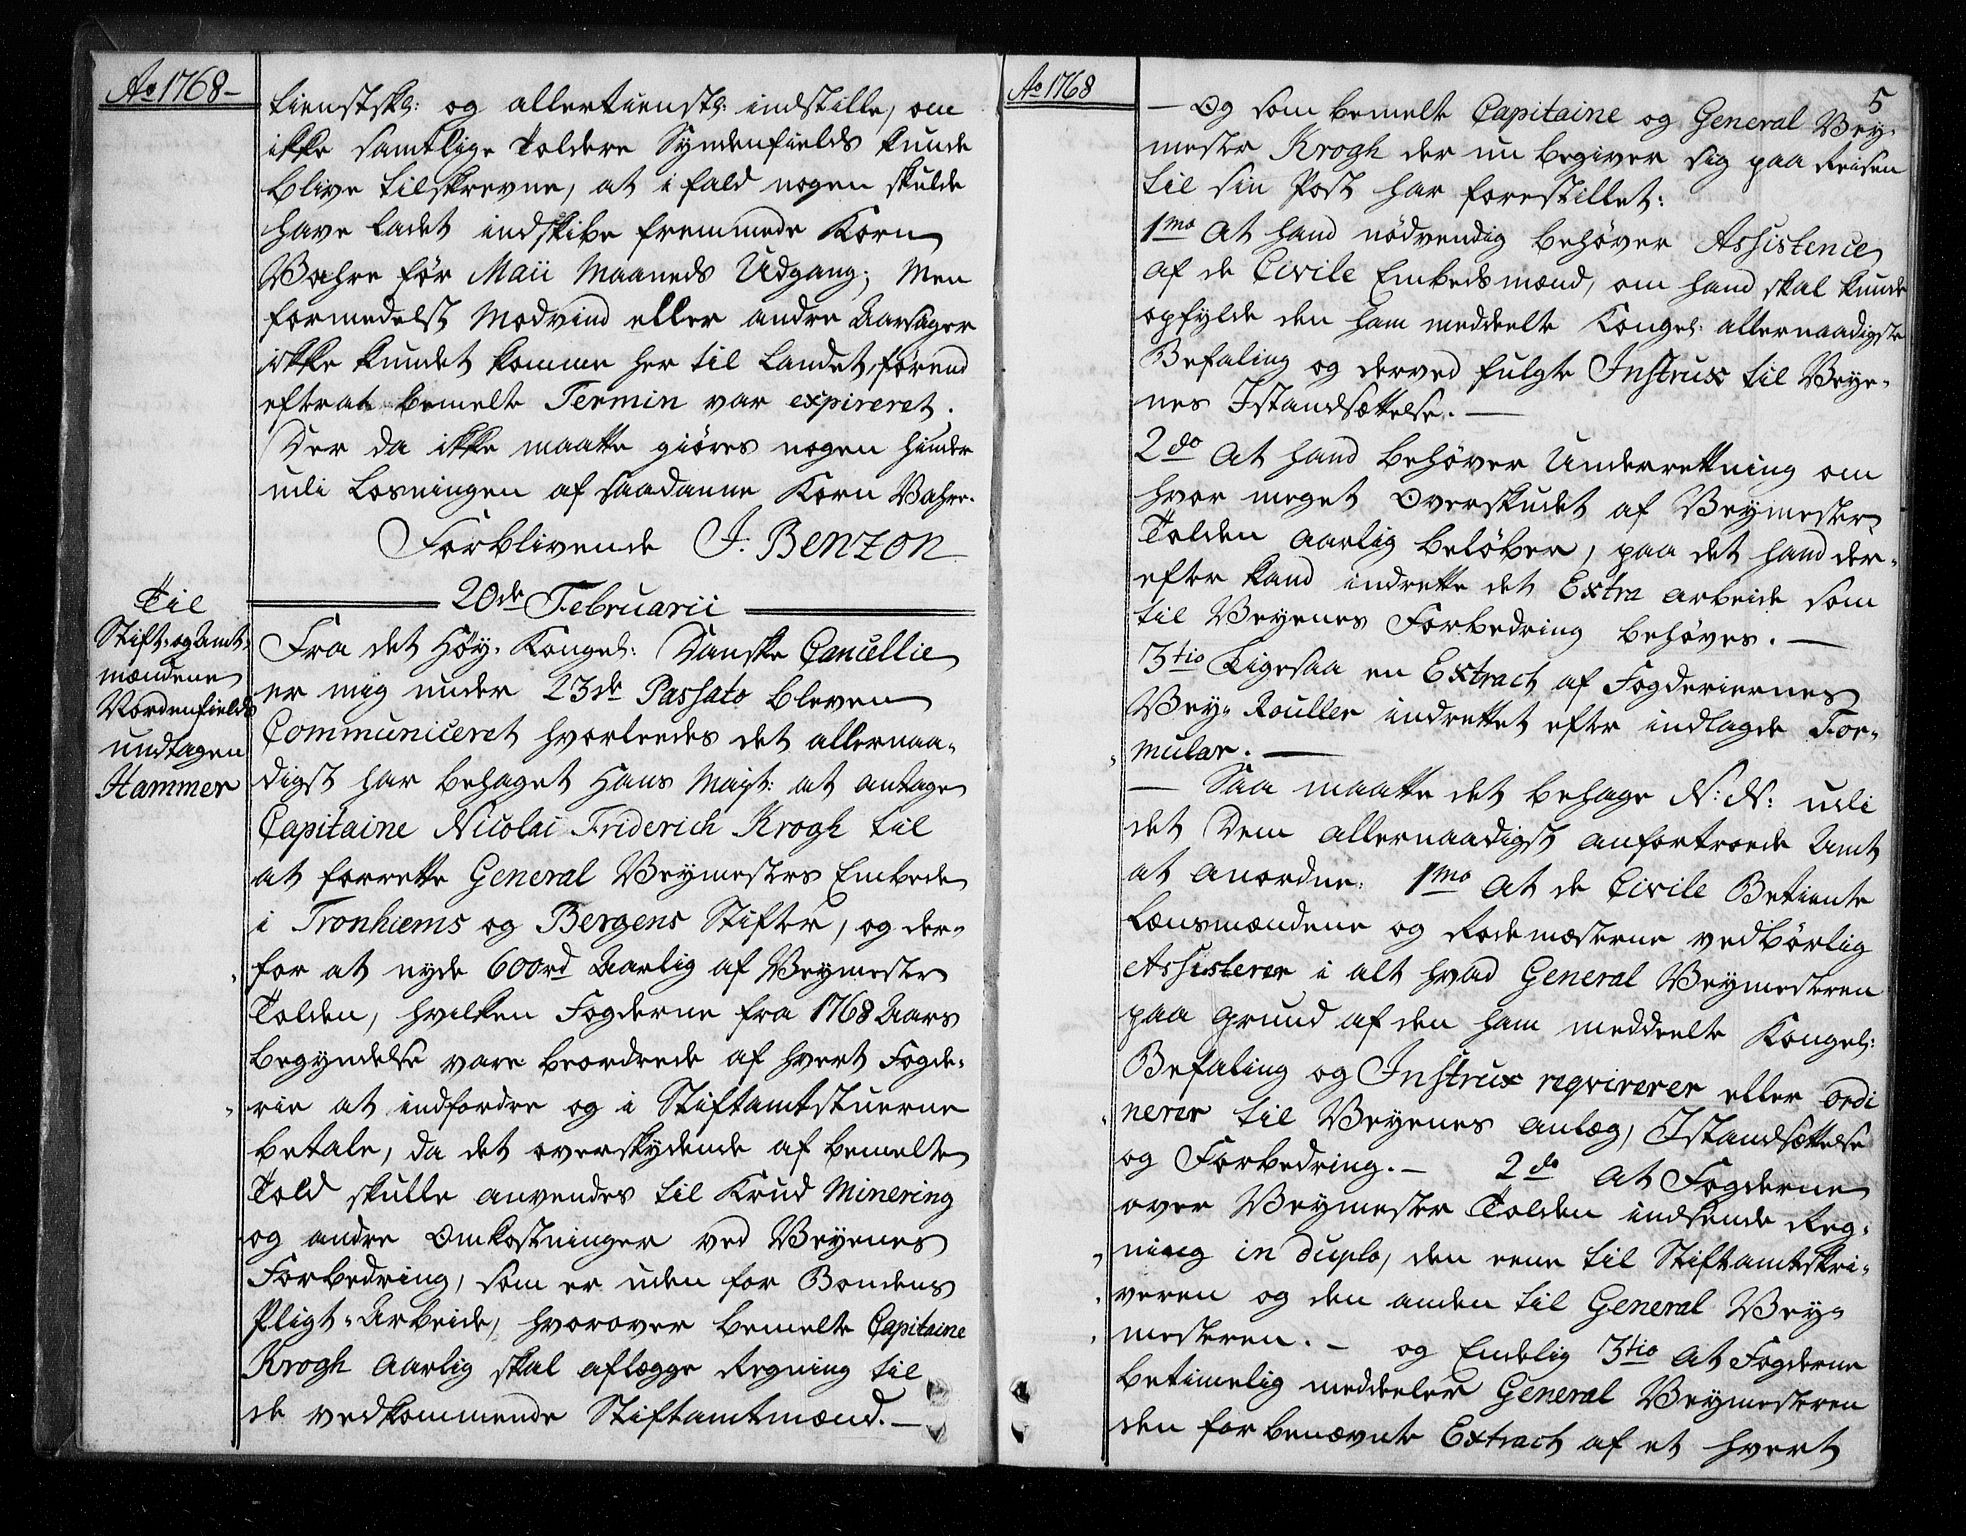 Ao 1768-
tienstskl: og allertienstl: indstille, om
ikke samtlige Toldere Syndenfields kunde
blive tilskrevne, at i fald nogen skulde
have ladet indskibe fremmede Korn
Vahre før Maii Maaneds Udgang; Men
formedelst Modvind eller andre Aarsager
ikke kundet komme her til Landet, førend
efterat bemelte Termin var expireret.
Der da ikke maatte giøres nogen hinder
udi Losningen af saadanne Korn Vahre.
Forblivende J. Benzon
20de Februarii
Til
Stift- og Amt-
mændene
Nordenfields
undtagen
Hammer
Fra det Høy-Kongel: Danske Cancellie
er mig under 23de Passato bleven
Communiceret hvorledes det allernaa-
digst har behaget Hans Mayt: at antage
Capitaine Nicolai Friderich Krogh til
at forrette General Veymesters Embede
i Tronhiems og Bergens Stifter, og der-
for at nyde 600rd Aarlig af Veymester
Tolden, hvilken Fogderne fra 1768 Aars
begyndelse vare beordrede af hvert Fogde-
rie at indfordre og i Stiftamtstuerne
betale, da det overskydende af bemelte
Told skulle anvendes til Krud Minering
og andre Omkostninger ved Veyenes
Forbedring, som er uden for Bondens
Pligt-Arbeide, hvorover bemelte Capitaine
Krogh aarlig skal aflægge Regning til
de vedkommende Stiftamtmænd.-
Ao 1768
5
- Og som bemelte Capitaine og General Vey-
mester Krogh der nu begiver sig paa Reisen
til sin Post har forestillet:
1mo At hand nödvendig behøver Assistence
af de Civile Embedsmænd, om hand skal kunde
opfylde den ham meddeelte Kongel: allernaadigste
Befaling og derved fulgte Instrux til Veye-
nes Istandsættelse.-
2do At hand behøver Underrettning om
hvor meget Overskudet af Veymester
Tolden aarlig beløber, paa det hand der-
efter kand indrette det Extra arbeide som
til Veyenes Forbedring behøves.-
3tio Ligesaa en Extract af Fogderiernes
Vey-Rouller indrettet efter indlagde For-
mular.-
- Saa maatte det behage N: N: udi
det Dem allernaadigst anfortroede Amt
at anordne: 1mo At de Civile Betiente
Lænsmændene og Rodemesterne vedbörlig
Assisterer i alt hvad General Veymesteren
paa grund af den ham meddeelte Kongel:
Befaling og Instrux reqvirerer eller ordi
nerer til Veyenes anlæg, Istandsættelse
og Forbedring.- 2do At Fogderne
over Veymester Tolden indsende Reg-
ning in duplo, den eene til Stiftamtskri-
veren og den anden til General Vey-
mesteren.- og Endelig 3tio At Fogderne
betimelig meddeeler General Veymesteren
den forbenævnte Extract af et hvert